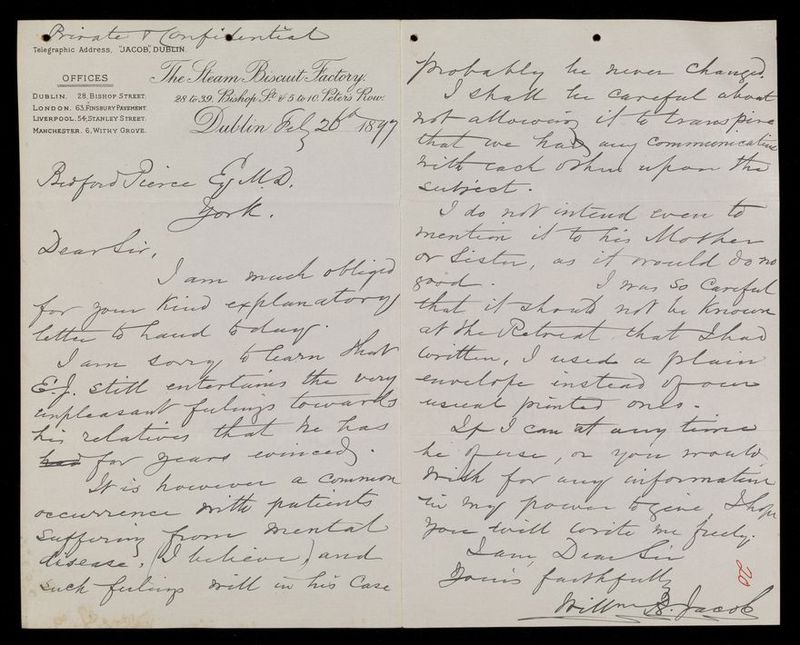 Private & Confidential
Telegraphic Address, "JACOB", DUBLIN.
OFFICES
DUBLIN. 28, BISHOP STREET.
LONDON. 63, FINSBURY PAVEMENT.
LIVERPOOL. 54, STANLEY STREET.
MANCHESTER. 6, WITHY GROVE.
The Steam Biscuit Factory.
28 to 39. Bishop St. & 5 to 10. Peters Row.
Dublin Feby 26th 1897
Bedford Pierce Esq M.D.
York.
Dear Sir,
I am much obliged
for your kind explanatory
letter to hand today.
I am sorry to learn that
E.J. still entertains the very
unpleasant feelings towards
his relatives that he has
had for years evinced.
It is however a common
occurrence with patients
suffering from mental
disease, (I believe) and
such feelings will in his case
probably be never changed.
I shall be careful about
not allowing it to transpire
that we had any communication
with each other upon the
subject.
I do not intend even to
mention it to his Mother
or Sister, as it would do no
good. I was so careful
that it should not be known
at the Retreat that I had
written, I used a plain
envelope instead of our
usual printed ones.
If I can at any time
be of use, or you would
wish for any information
in my power to give, I hope
you will write me freely.
I am, Dear Sir
Yours faithfully
Willm B. Jacob
20